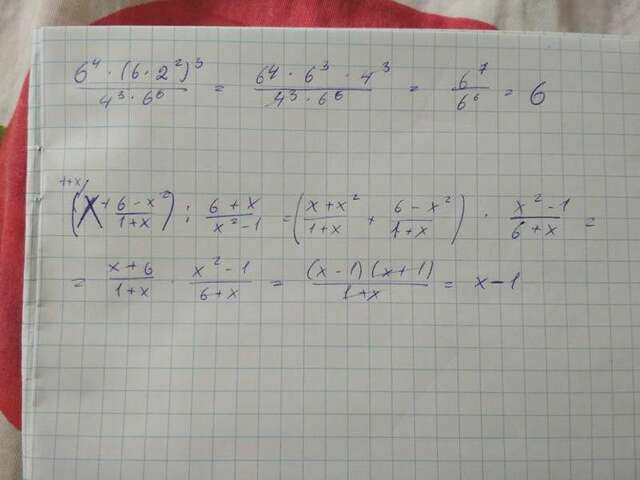 6⁴ · (6 · 2²)³ / 4³ · 6⁶ = 6⁴ · 6³ · 4³ / 4³ · 6⁶ = 6⁷ / 6⁶ = 6
1+x/
(x + 6 - x² / 1+x) : 6 + x / x² - 1 = (x + x² / 1+x + 6 - x² / 1+x) · x² - 1 / 6 + x =
= x + 6 / 1+x · x² - 1 / 6 + x = (x - 1)(x + 1) / 1+x = x - 1